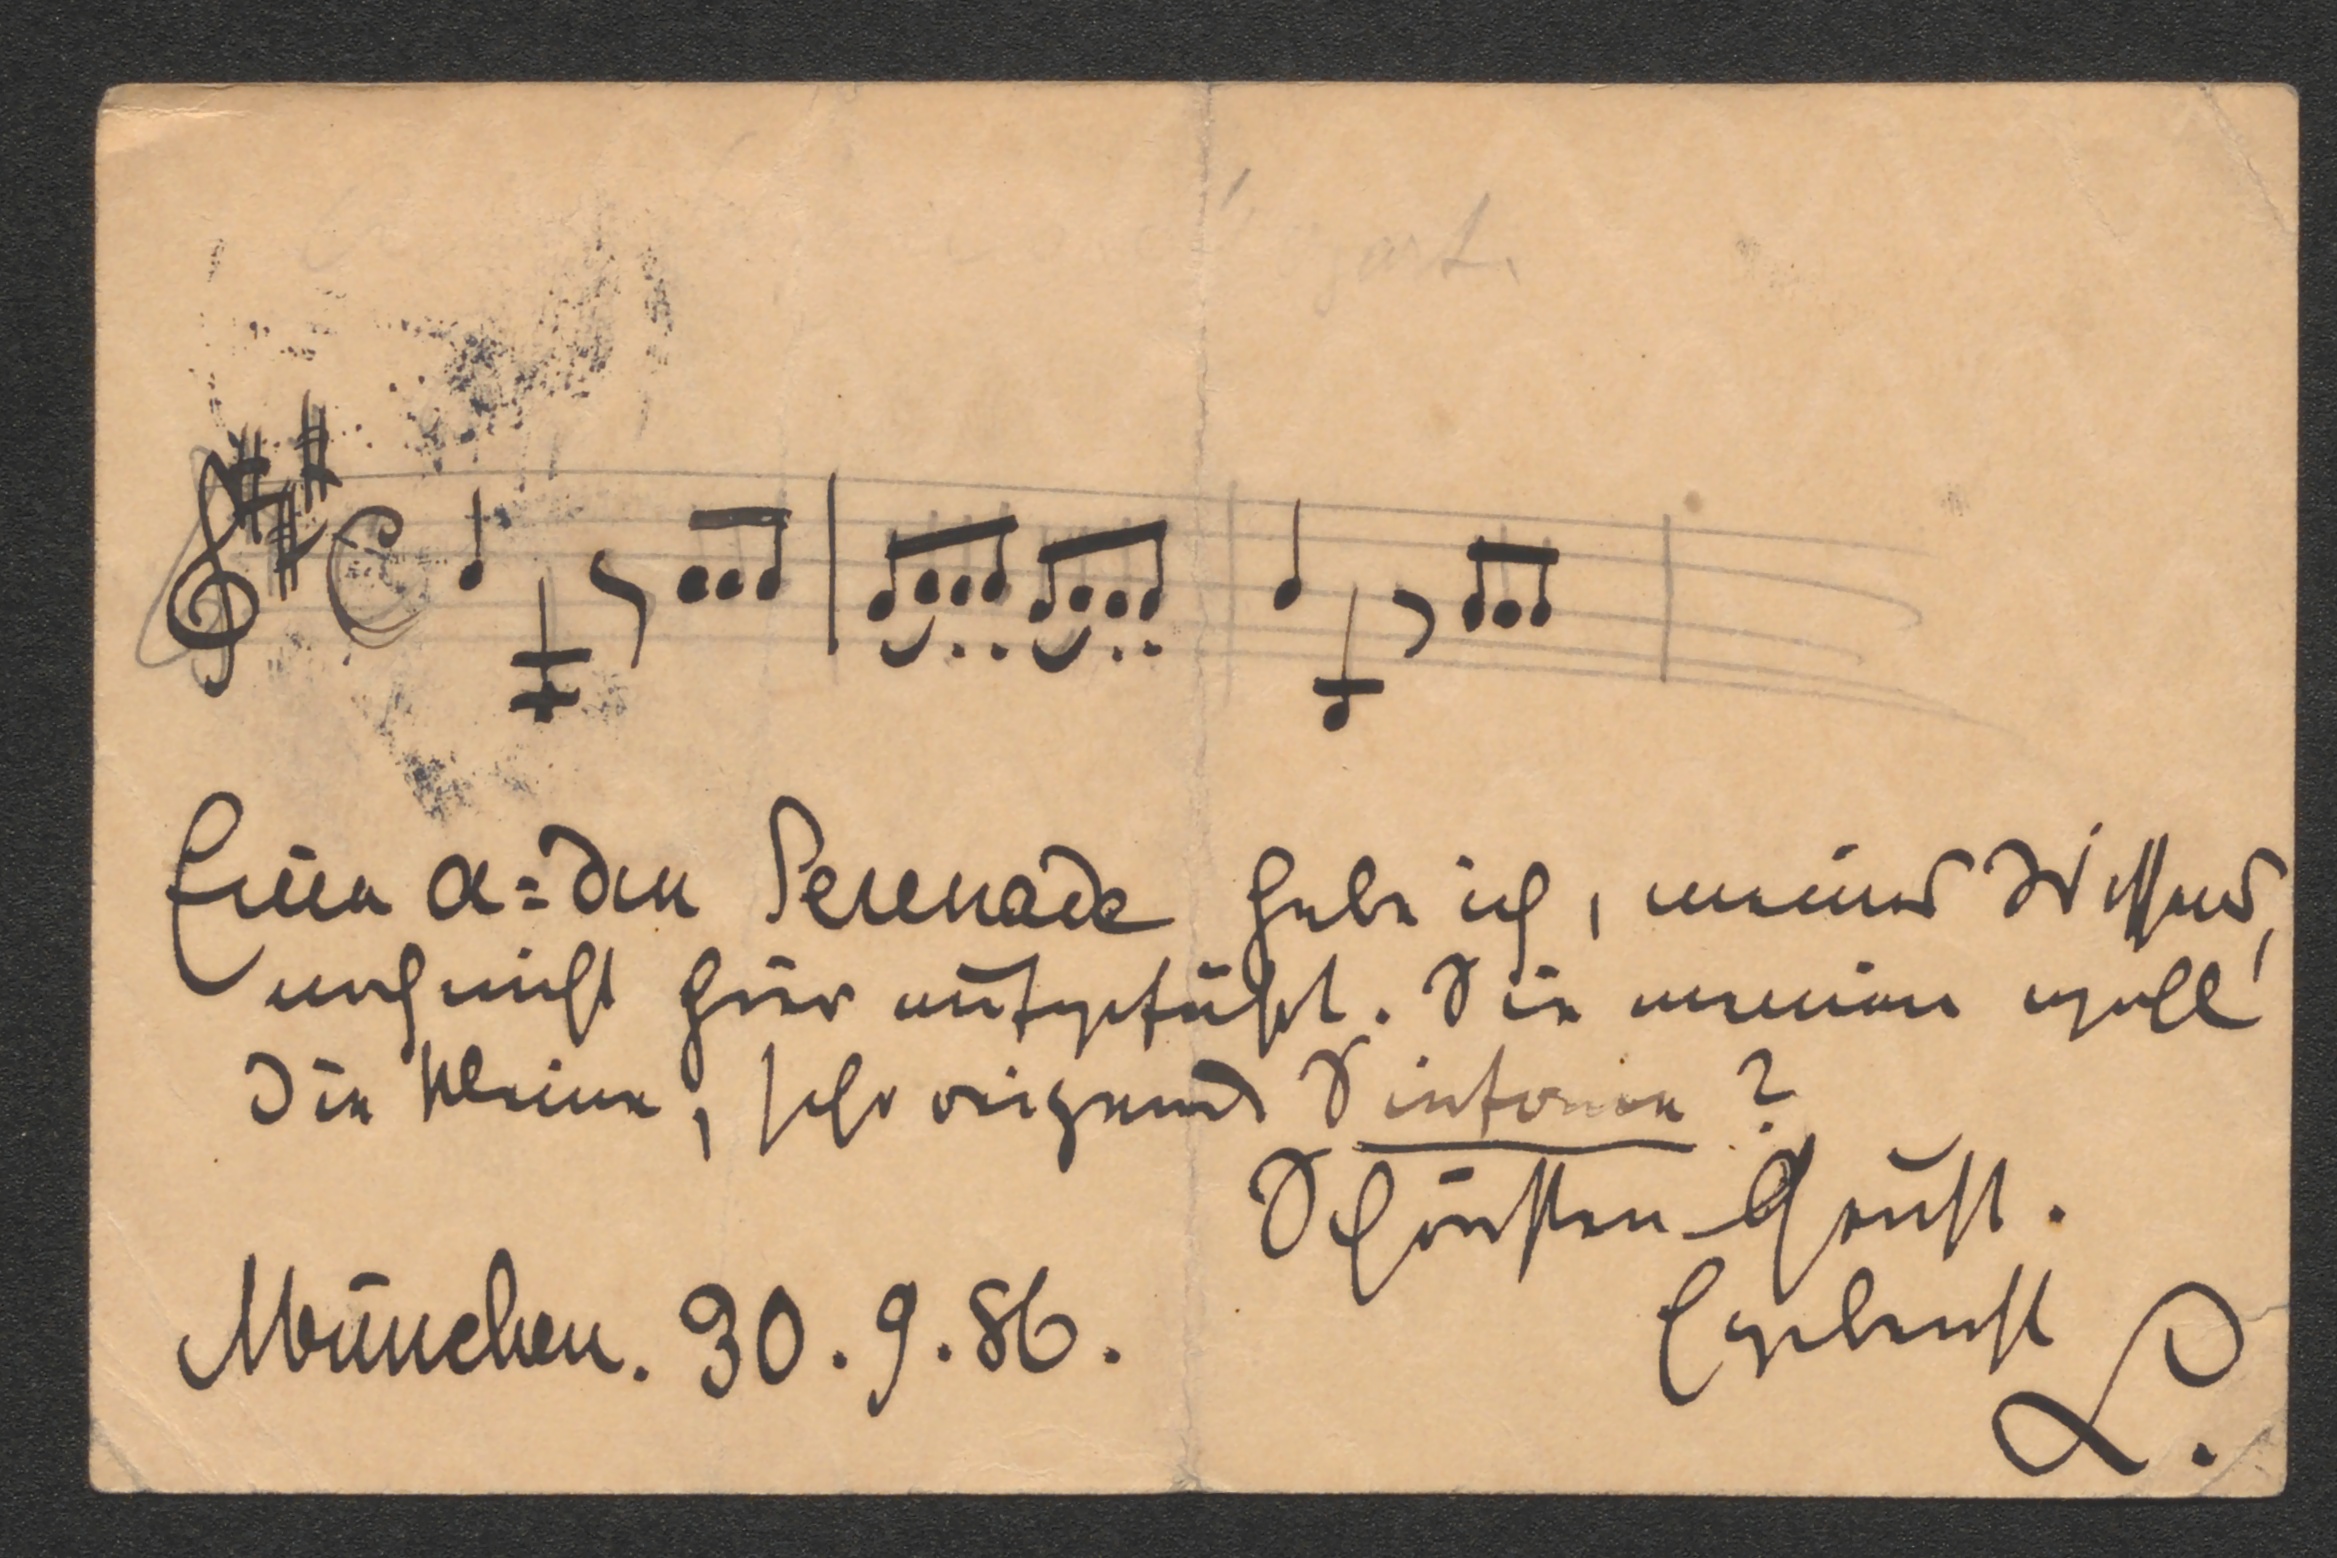 Eine A=dur Serenade habe ich, meines Wissens,
noch nicht hier aufgeführt. Sie meinen wohl
die kleine, sehr reizende Sinfonie?
Schönsten Gruß.
Ergebenst
München. 30.9.86. L.